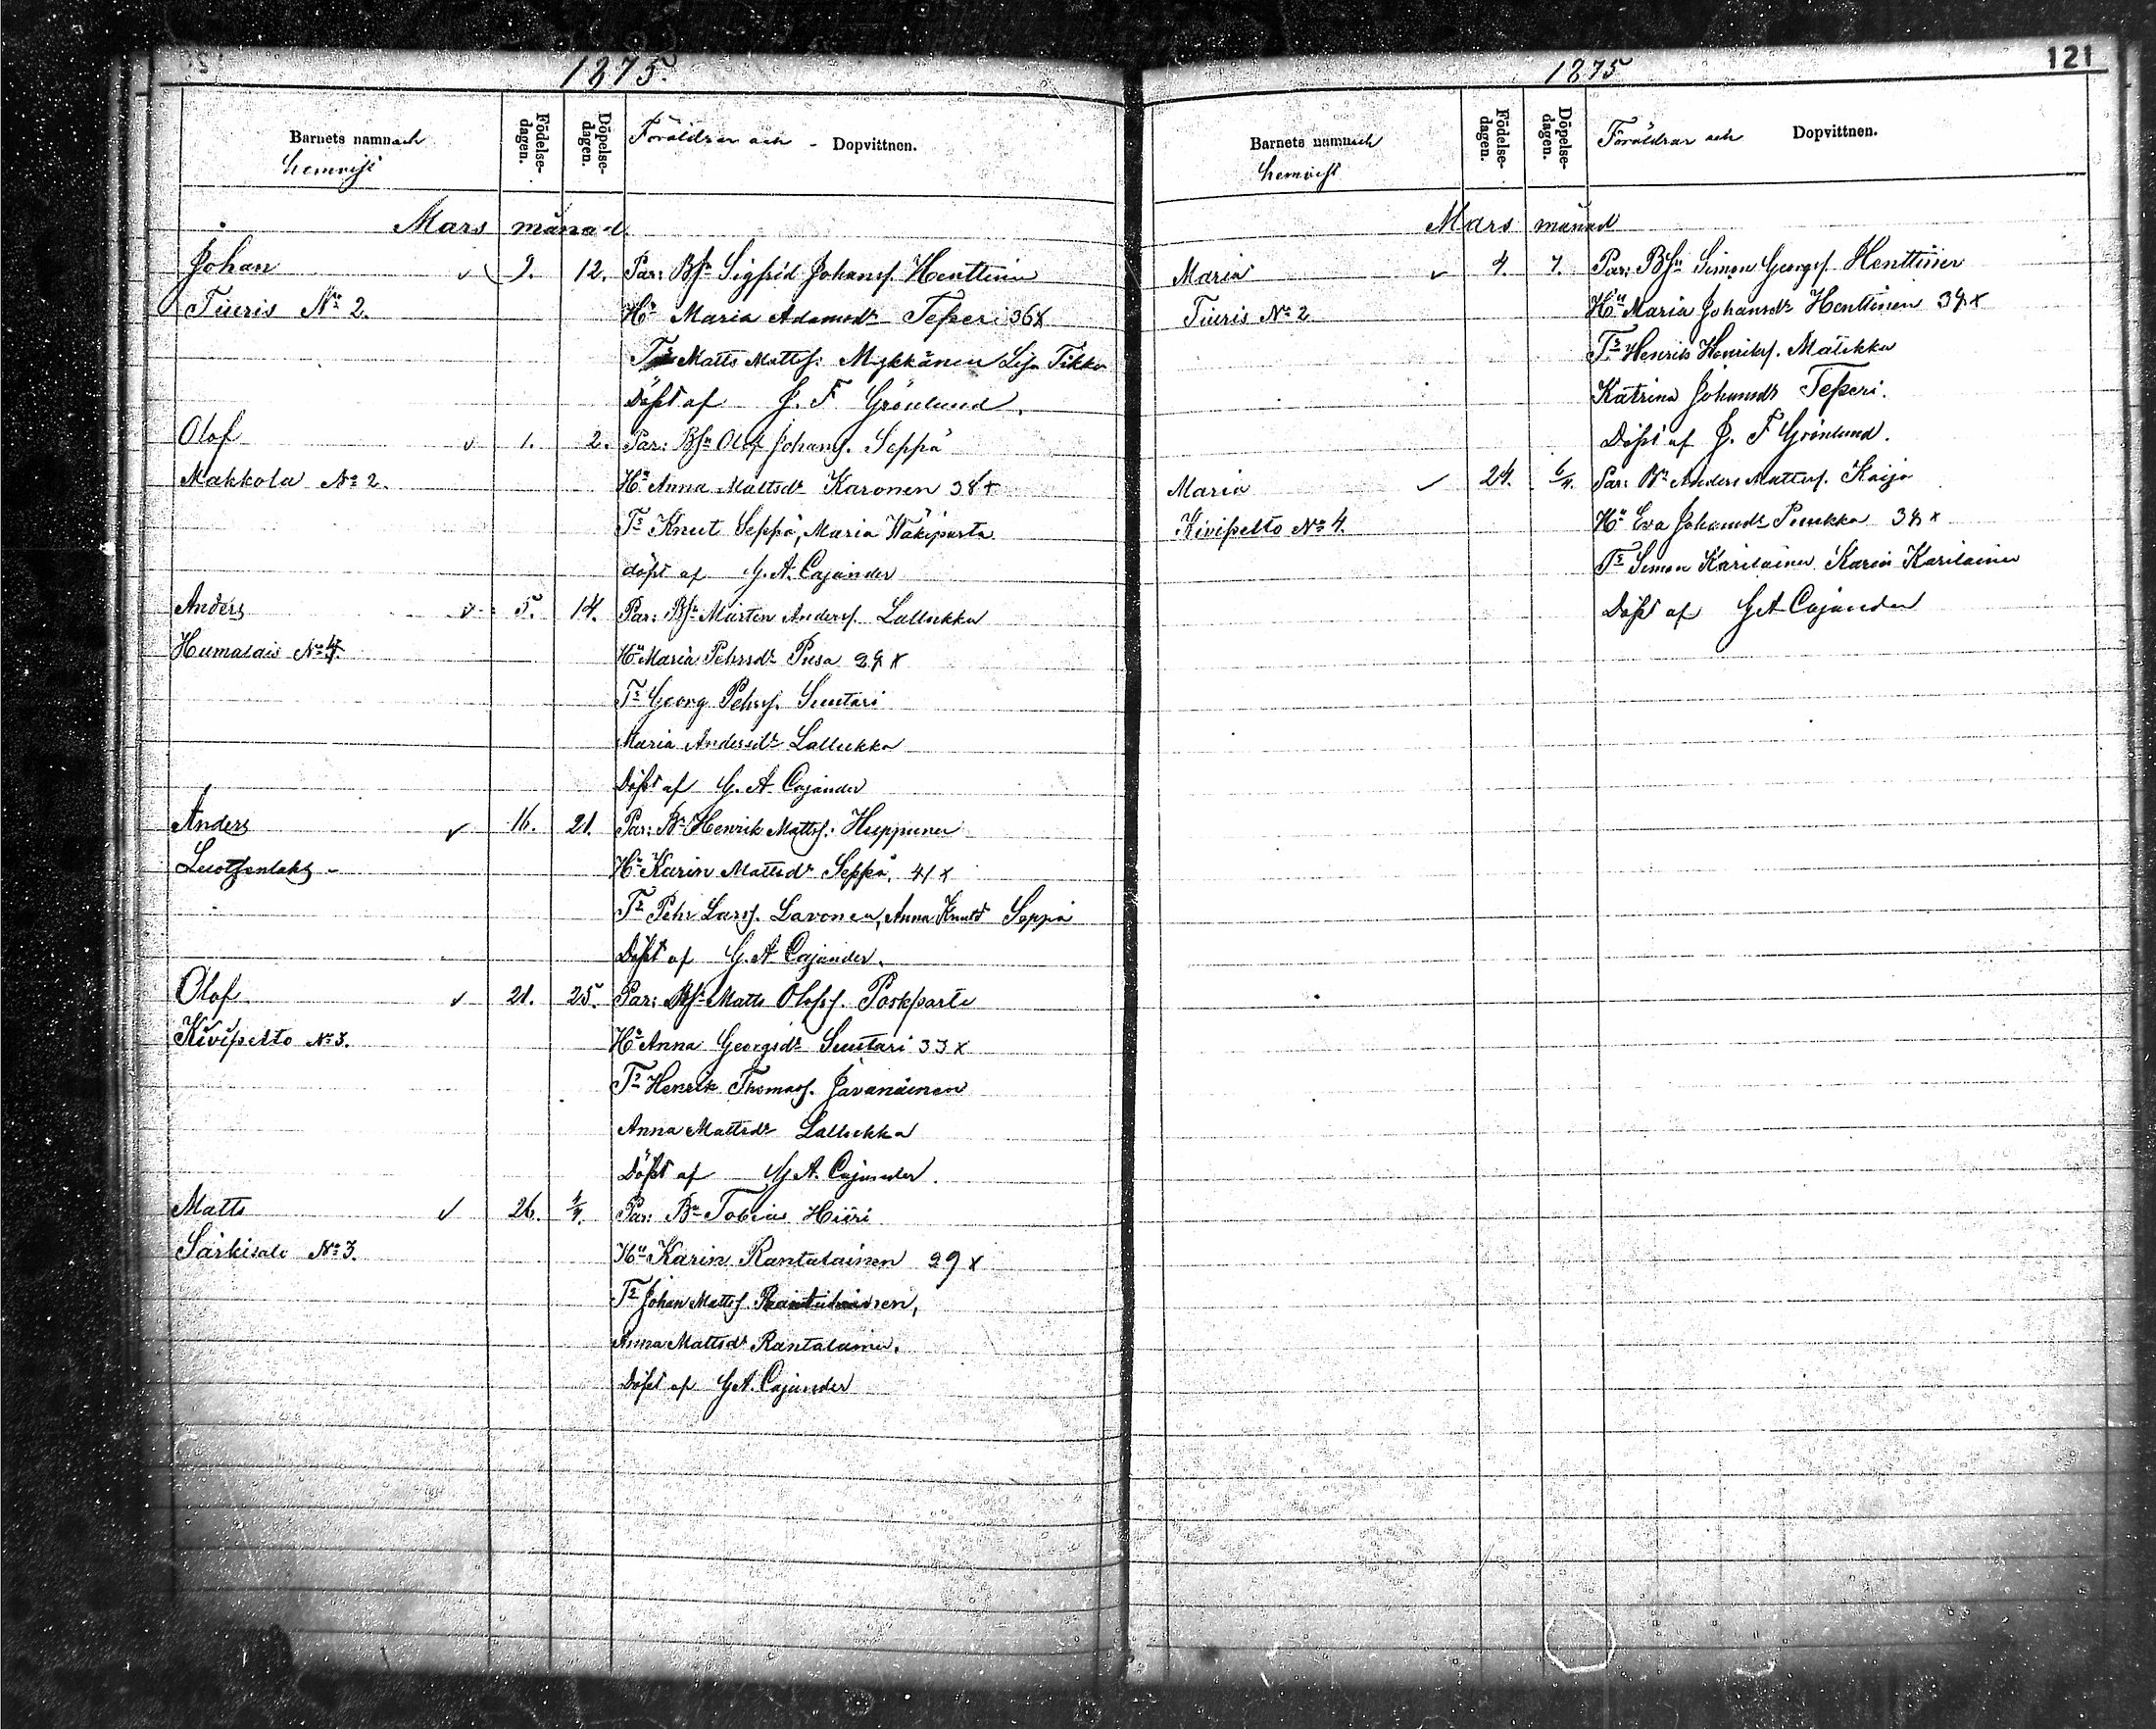 1875.
Barnets namn och
hemvist
Födelse-
dagen.
Döpelse-
dagen.
Föräldrar och Dopvittnen.
Mars månad.
Johan 9. 12. Par: Bsn Sigfrid Johansf. Henttinen
Tiieris No 2. Hu Maria Adamsdr Teperi 36 x
Matts Mattsf: Mykkänen Lisa Tikka
Döpt af J. F. Grönlund.
Olof 1. 2. Par: Bsn Olof Johansf. Seppä
Makkola No 2. Hu Anna Mattsdr Karonen 38 x
Ts Knut Seppä, Maria Wäkiparta
döpt af G. A. Cajander
Anders 5. 14. Par: Bsn Mårten Andersf. Lallukka
Humalais No Hu Maria Pehrsdr Pusa 29 x
Ts Georg Pehrsf. Suutari
Maria Andersdr Lallukka
Döpt af G. A. Cajander
Anders 16. 21. Par: Bn Henrik Mattsf: Huppunen
Hu Karin Mattsdr Seppä. 41 x
Ts Pehr Larsf. Lavonen, Anna Knutsd Seppä
Döpt af G. A. Cajander.
Olof 21. 25. Par: Bsn Matts Olofsf. Poskparta
Kivipelto No 3. Hu Anna Georgsdr Suutari 33 x
Ts Henrik Thomasf. Javanainen
Anna Mattsdr Lallukka
Döpt af G. A. Cajander.
Matts 26. 4/4. Par: Bn Tobias Hiiri
Särkisalo No 3. Hu Karin Rantalainen 29 x
Ts Johan Mattsf Rantalainen,
Anna Mattsdr Rantalainen.
Döpt af G. A. Cajander
1875
121
Barnets namn och
hemvist
Födelse-
dagen.
Döpelse-
dagen.
Föräldrar och Dopvittnen.
Mars månad
Maria 4. 7. Par: Bsn Simon Georgsf. Henttinen
Tiieris No 2 Hu Maria Johansdr Henttinen 39 x
Ts Henrik Henriksf. Mätikka
Katrina Johansdr Teperi.
Döpt af J. F. Grönlund.
Maria 24. 6/4. Par: Bn Anders Mattsf. Kaija
Kivipelto No 4. Hu Eva Johansdr Puukka 38 x
Ts Simon Karilainen Karin Karilainen
Döpt af G A Cajander